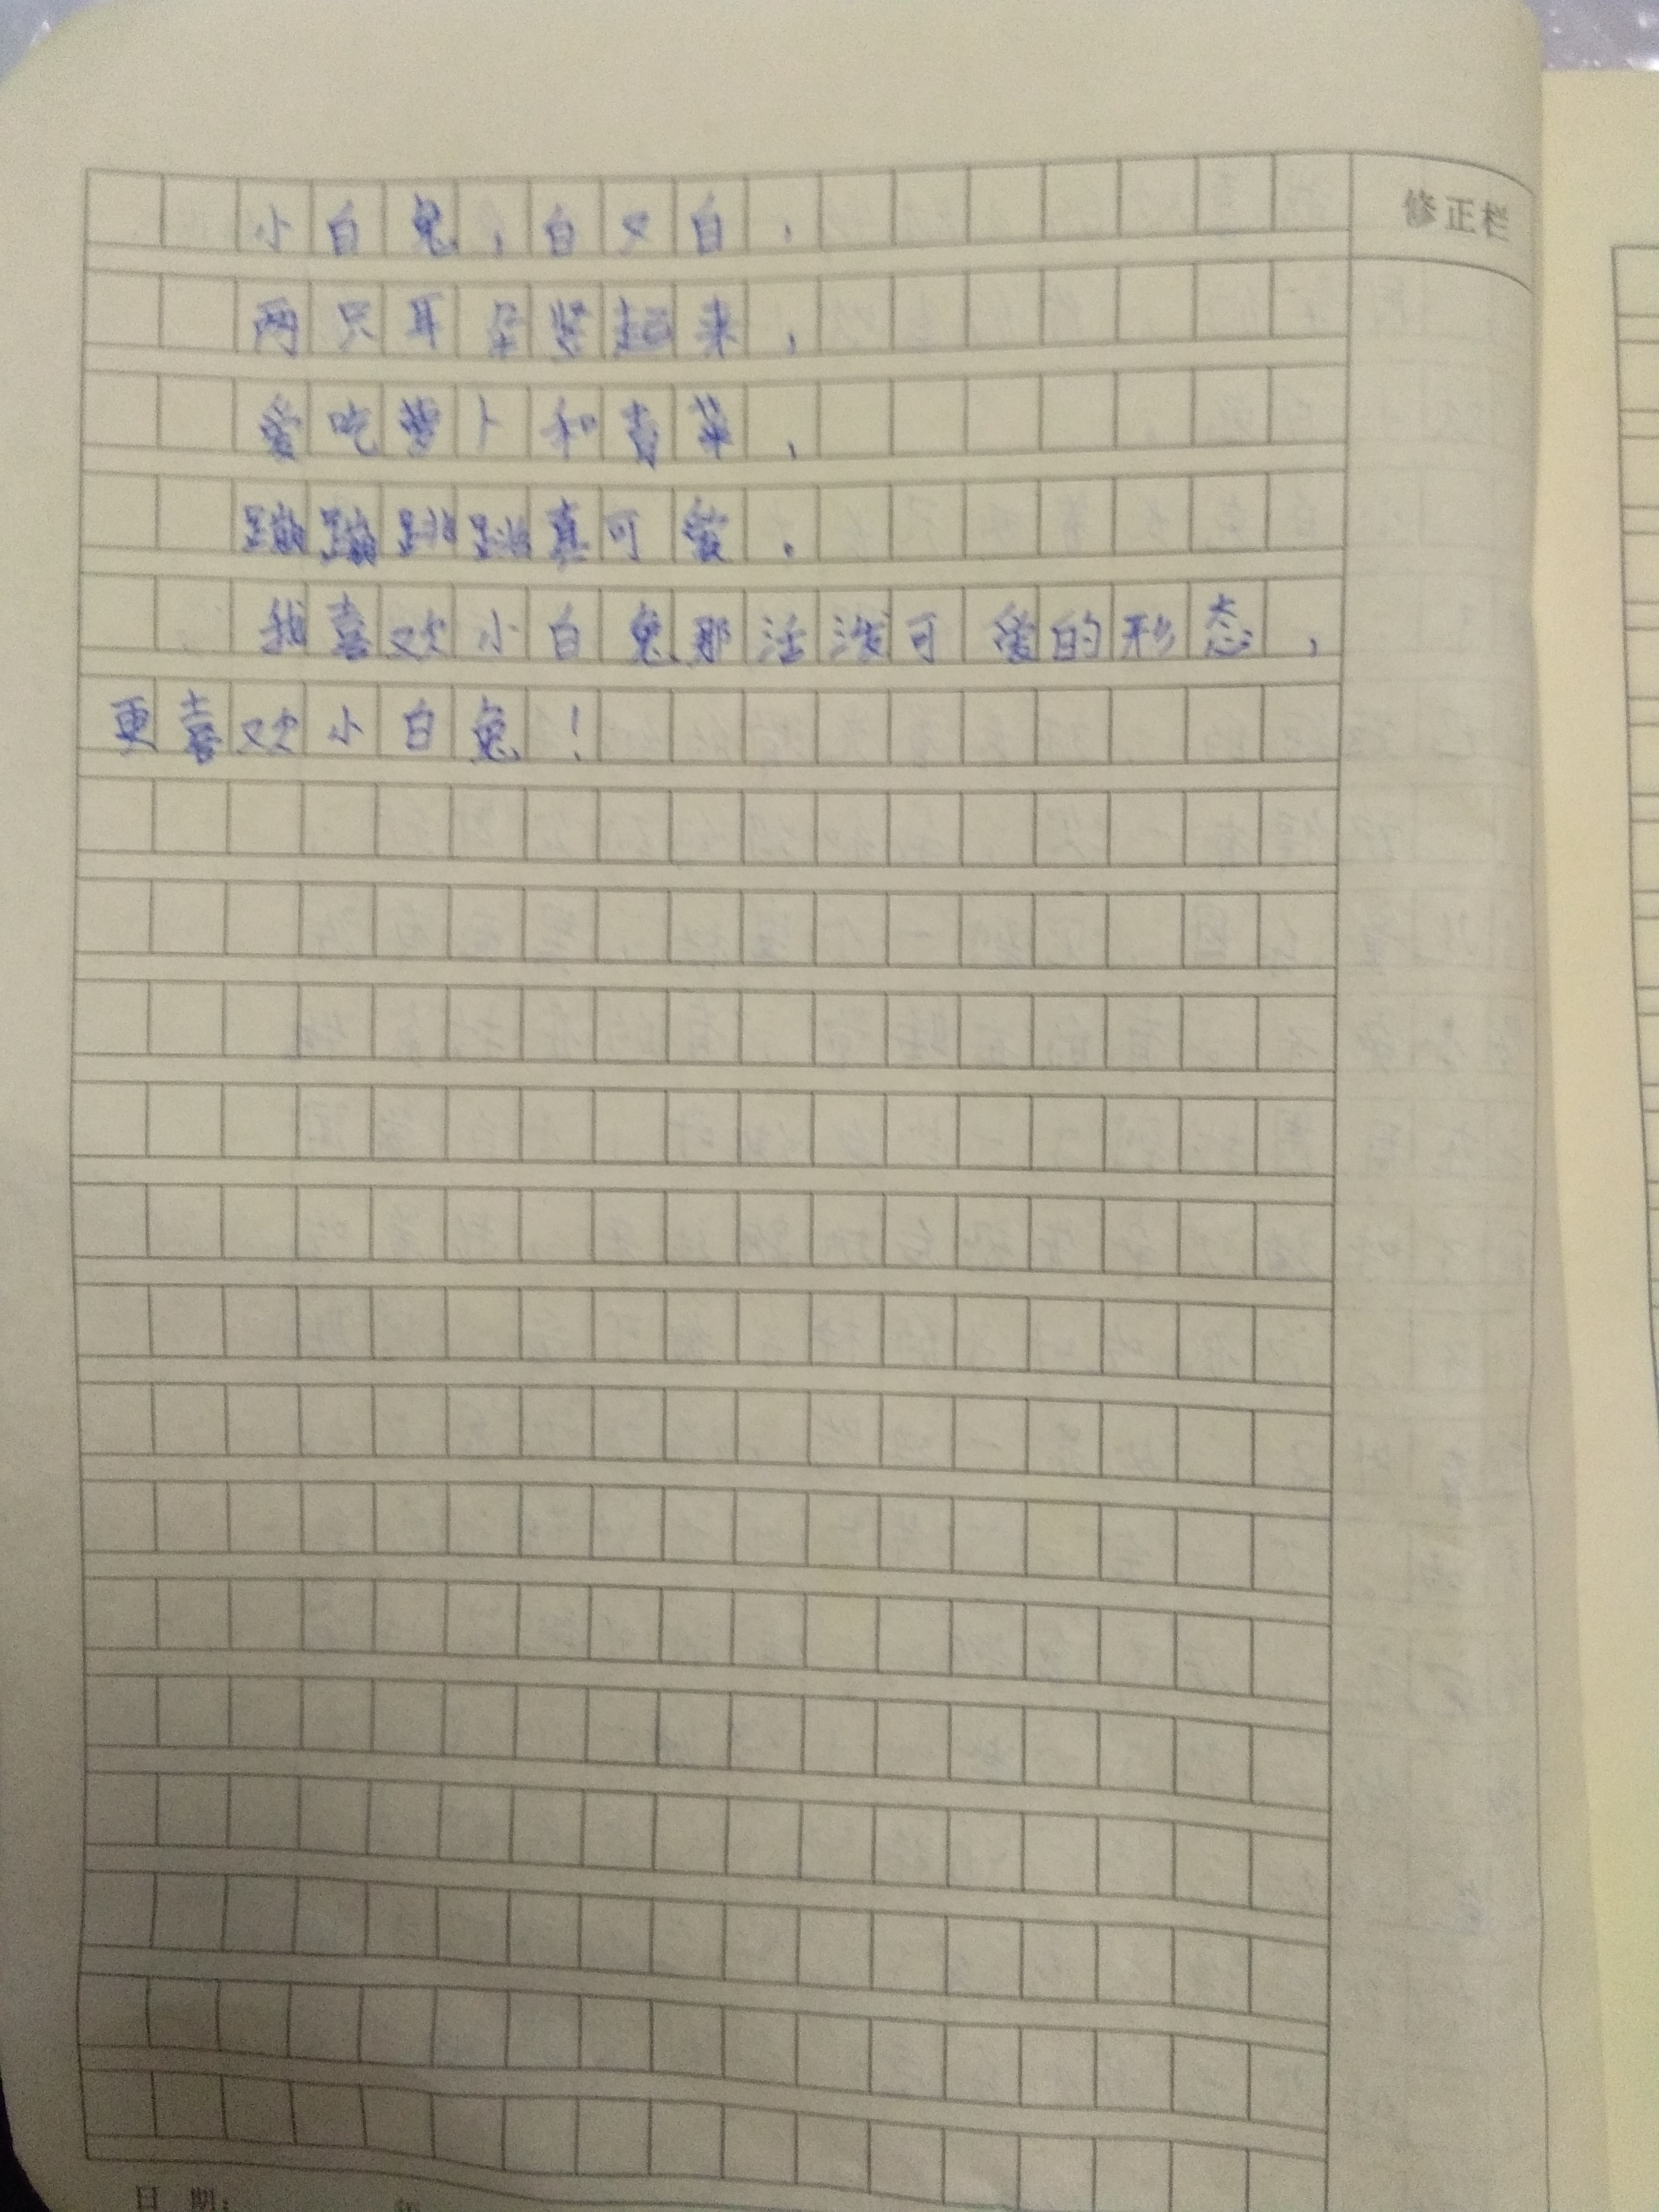 修正栏
小白兔，白又白，
两只耳朵竖起来，
爱吃萝卜和青菜，
蹦蹦跳跳真可爱。
我喜欢小白兔那活泼可爱的形态，
更喜欢小白兔！
日 期： 年